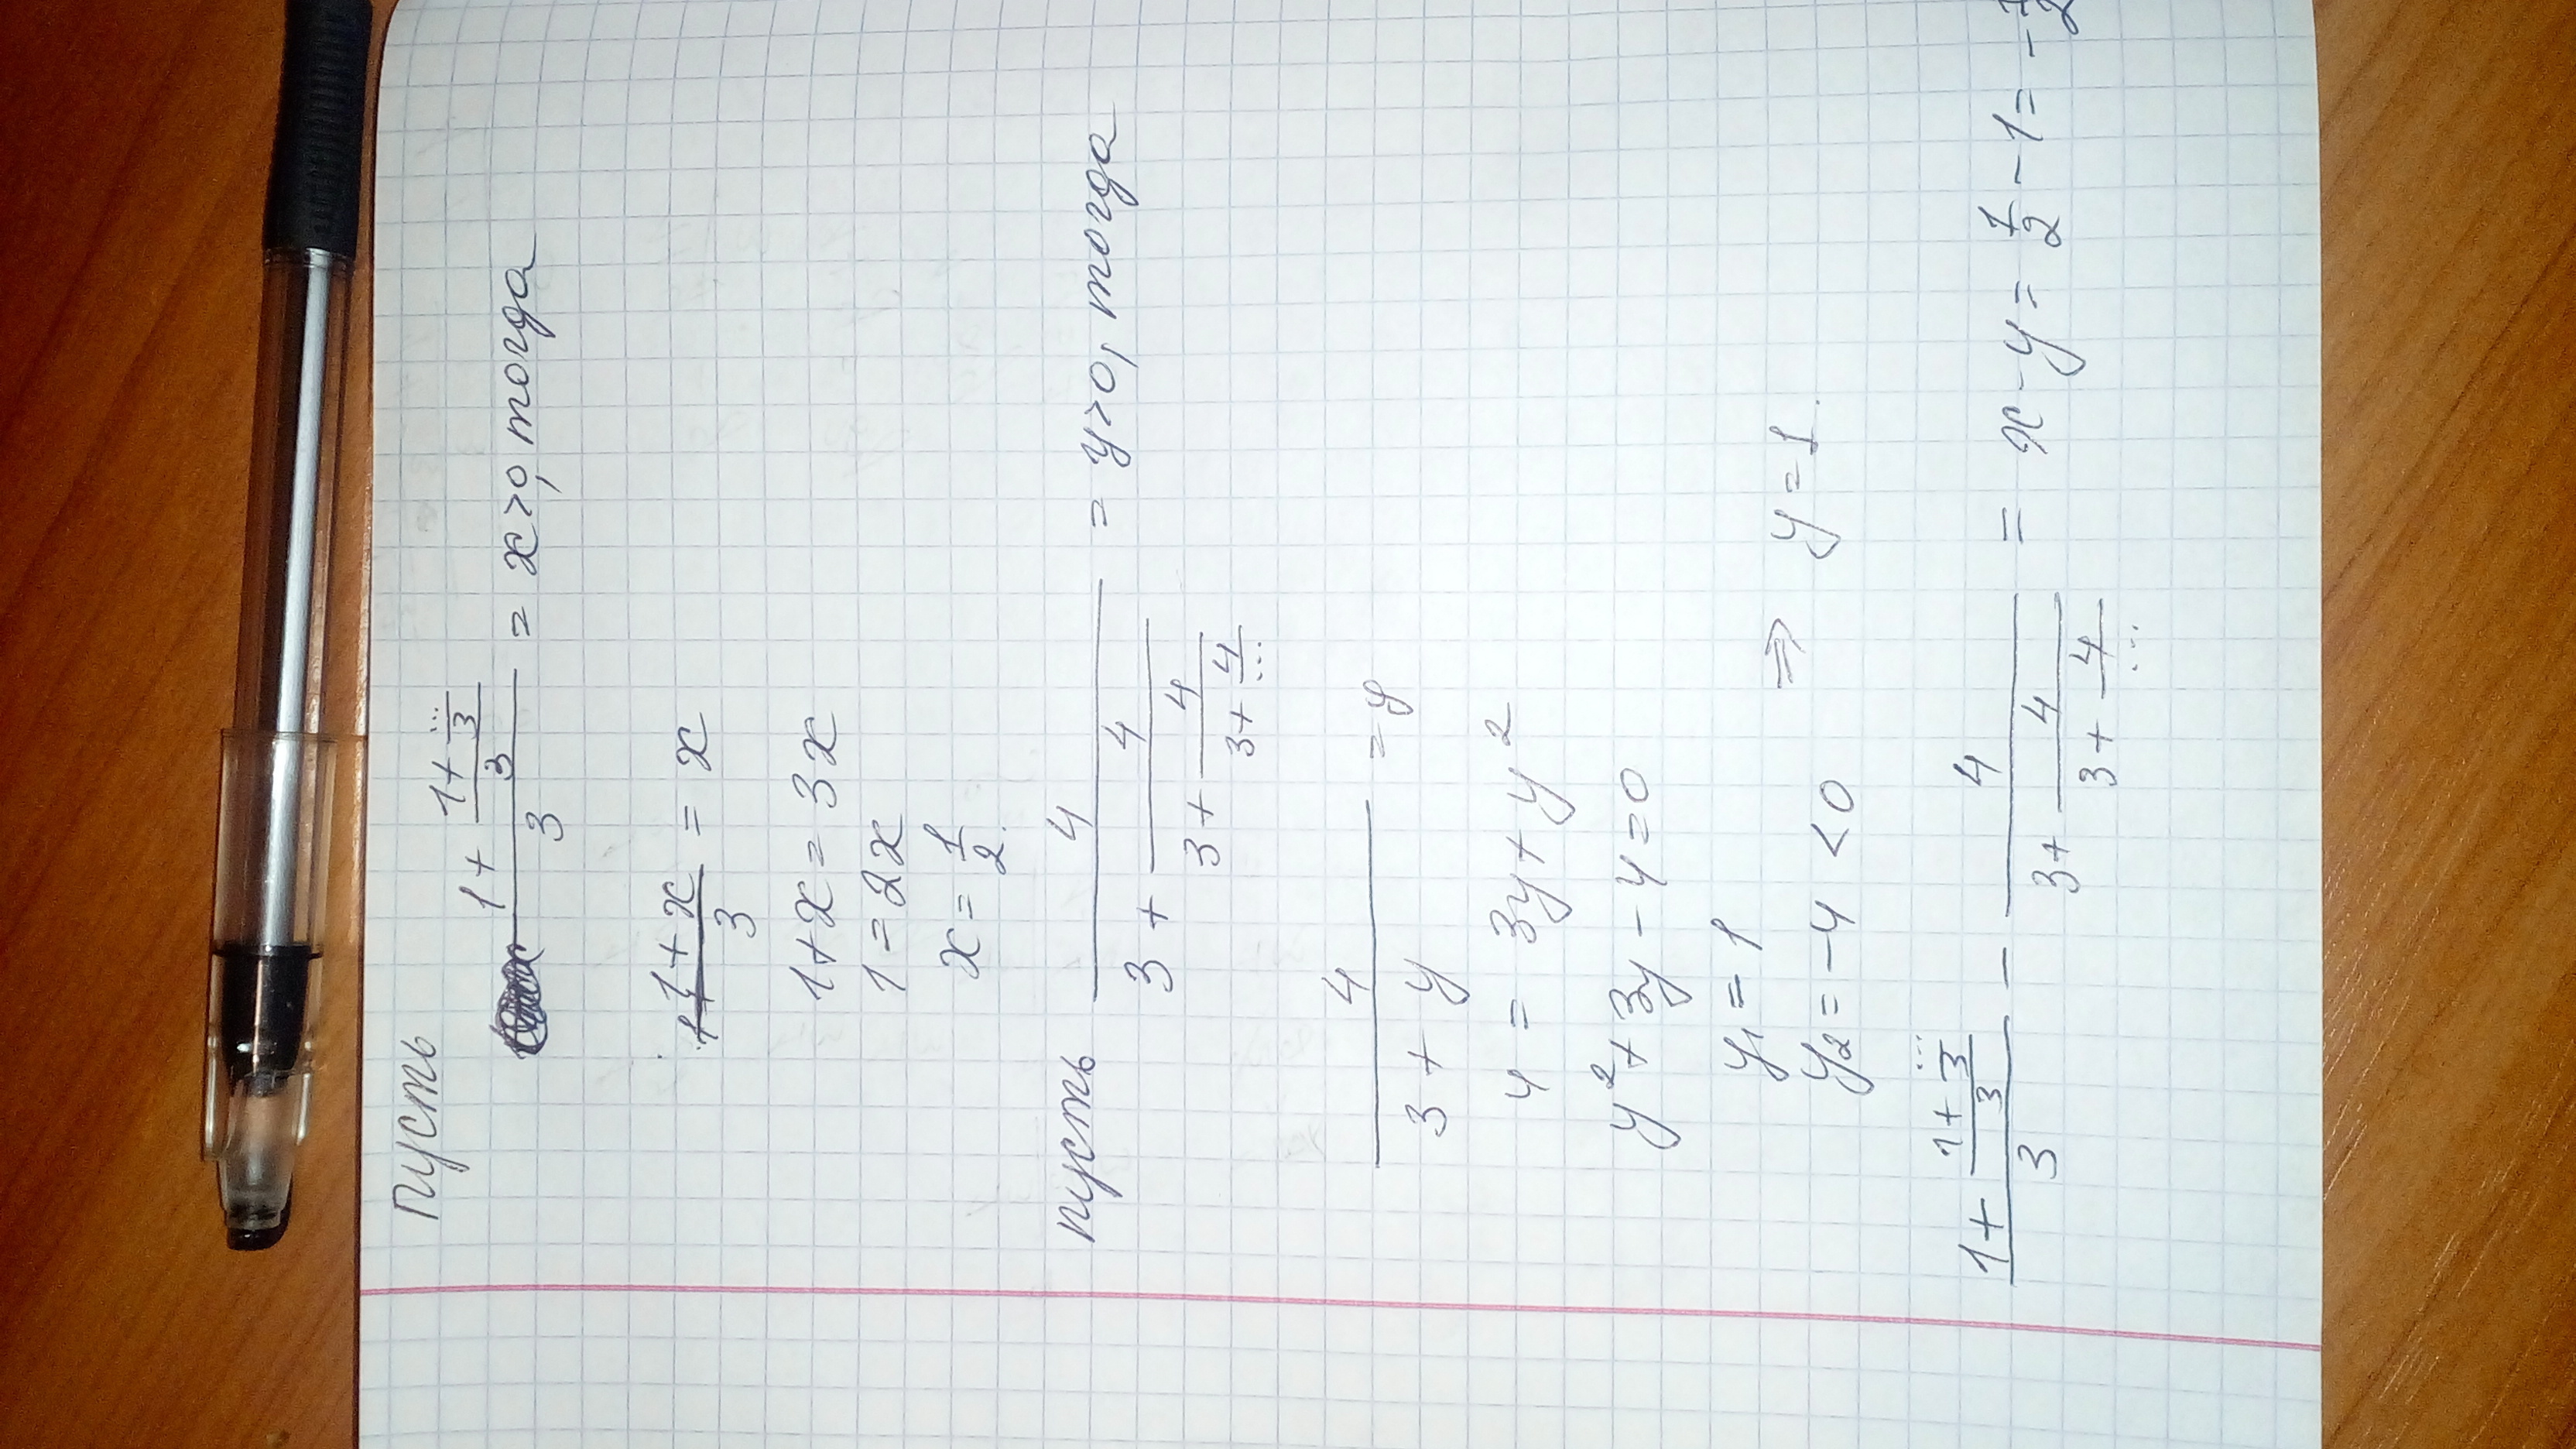 Пусть
(1 + (1 + .../3)/3)/3 = x > 0, тогда
(1 + x)/3 = x
1 + x = 3x
1 = 2x
x = 1/2.
пусть
4/(3 + 4/(3 + 4/(3 + 4/...))) = y > 0, тогда
4/(3 + y) = y
4 = 3y + y²
y² + 3y - 4 = 0
y₁ = 1
y₂ = -4 < 0 ⇒ y = 1.
(1 + (1 + .../3)/3)/3 - 4/(3 + 4/(3 + 4/...)) = x - y = 1/2 - 1 = -1/2